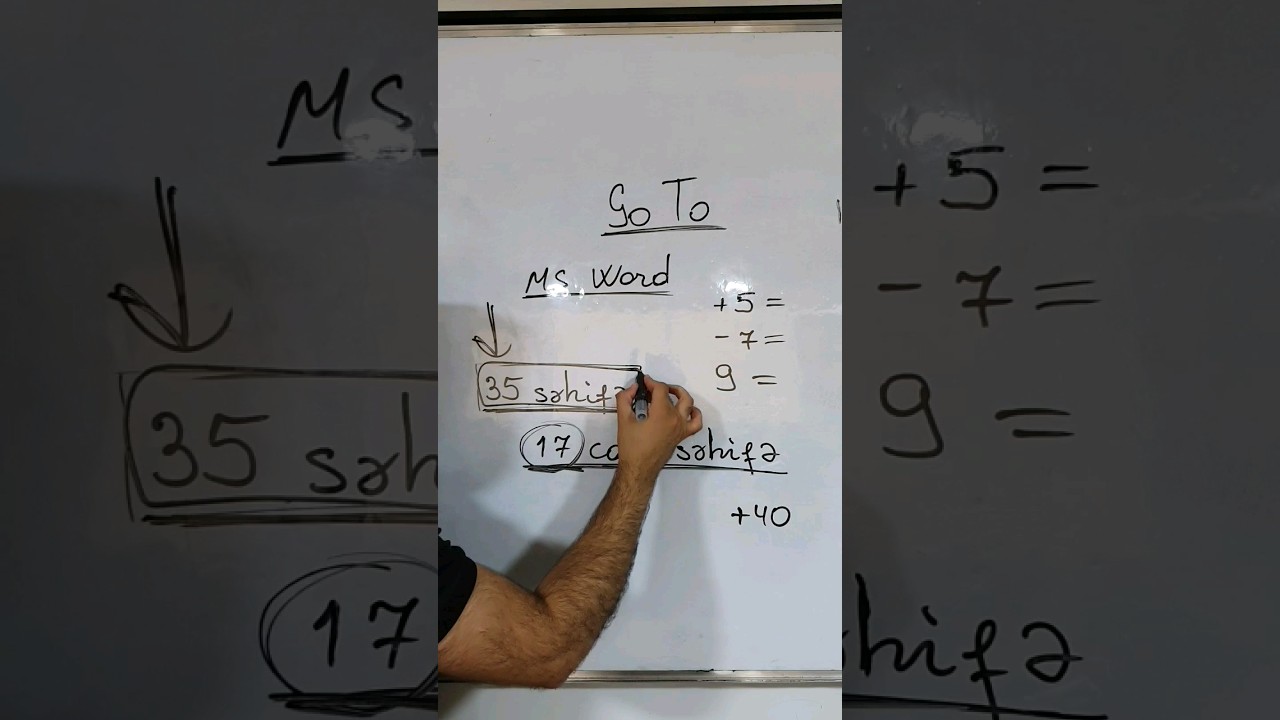 Go To
MS Word
+5 =
- 7 =
9 =
35 səhifə
17 səhifə
+40